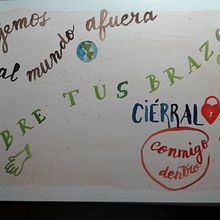 jemos
al mundo afuera
BRE TUS BRAZO
CIÉRRAL
conmigo
dentro